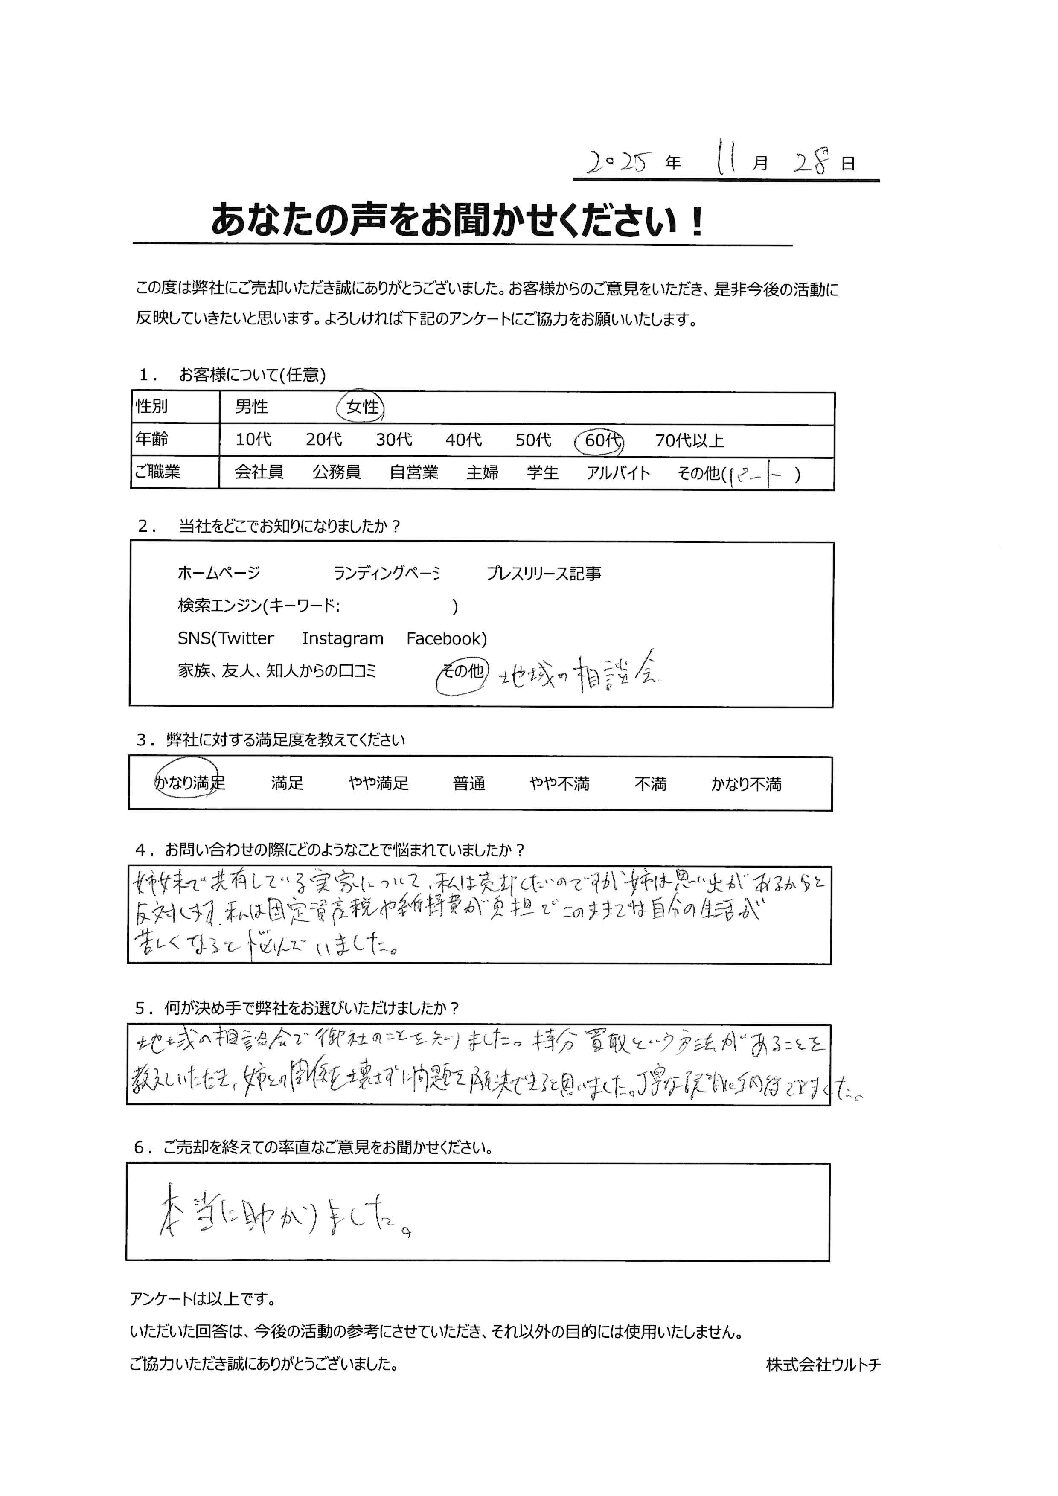 2025 年 11 月 28 日
あなたの声をお聞かせください！
この度は弊社にご売却いただき誠にありがとうございました。お客様からのご意見をいただき、是非今後の活動に
反映していきたいと思います。よろしければ下記のアンケートにご協力をお願いいたします。
1． お客様について(任意)
性別 男性 女性
年齢 10代 20代 30代 40代 50代 60代 70代以上
ご職業 会社員 公務員 自営業 主婦 学生 アルバイト その他(パート)
2． 当社をどこでお知りになりましたか？
ホームページ ランディングページ プレスリリース記事
検索エンジン(キーワード: )
SNS(Twitter Instagram Facebook)
家族、友人、知人からの口コミ その他 地域の相談会
3．弊社に対する満足度を教えてください
かなり満足 満足 やや満足 普通 やや不満 不満 かなり不満
4．お問い合わせの際にどのようなことで悩まれていましたか？
姉妹で共有している実家について、私は売却したいのですが姉は思い出があるからと
反対します。私は固定資産税や維持費が負担でこのままでは自分の生活が
苦しくなると悩んでいました。
5．何が決め手で弊社をお選びいただけましたか？
地域の相談会で御社のことを知りました。持分買取という方法があることを
教えていただき、姉との関係を壊さずに問題を解決できると思いました。丁寧な説明に納得できました。
6．ご売却を終えての率直なご意見をお聞かせください。
本当に助かりました。
アンケートは以上です。
いただいた回答は、今後の活動の参考にさせていただき、それ以外の目的には使用いたしません。
ご協力いただき誠にありがとうございました。 株式会社ウルトチ